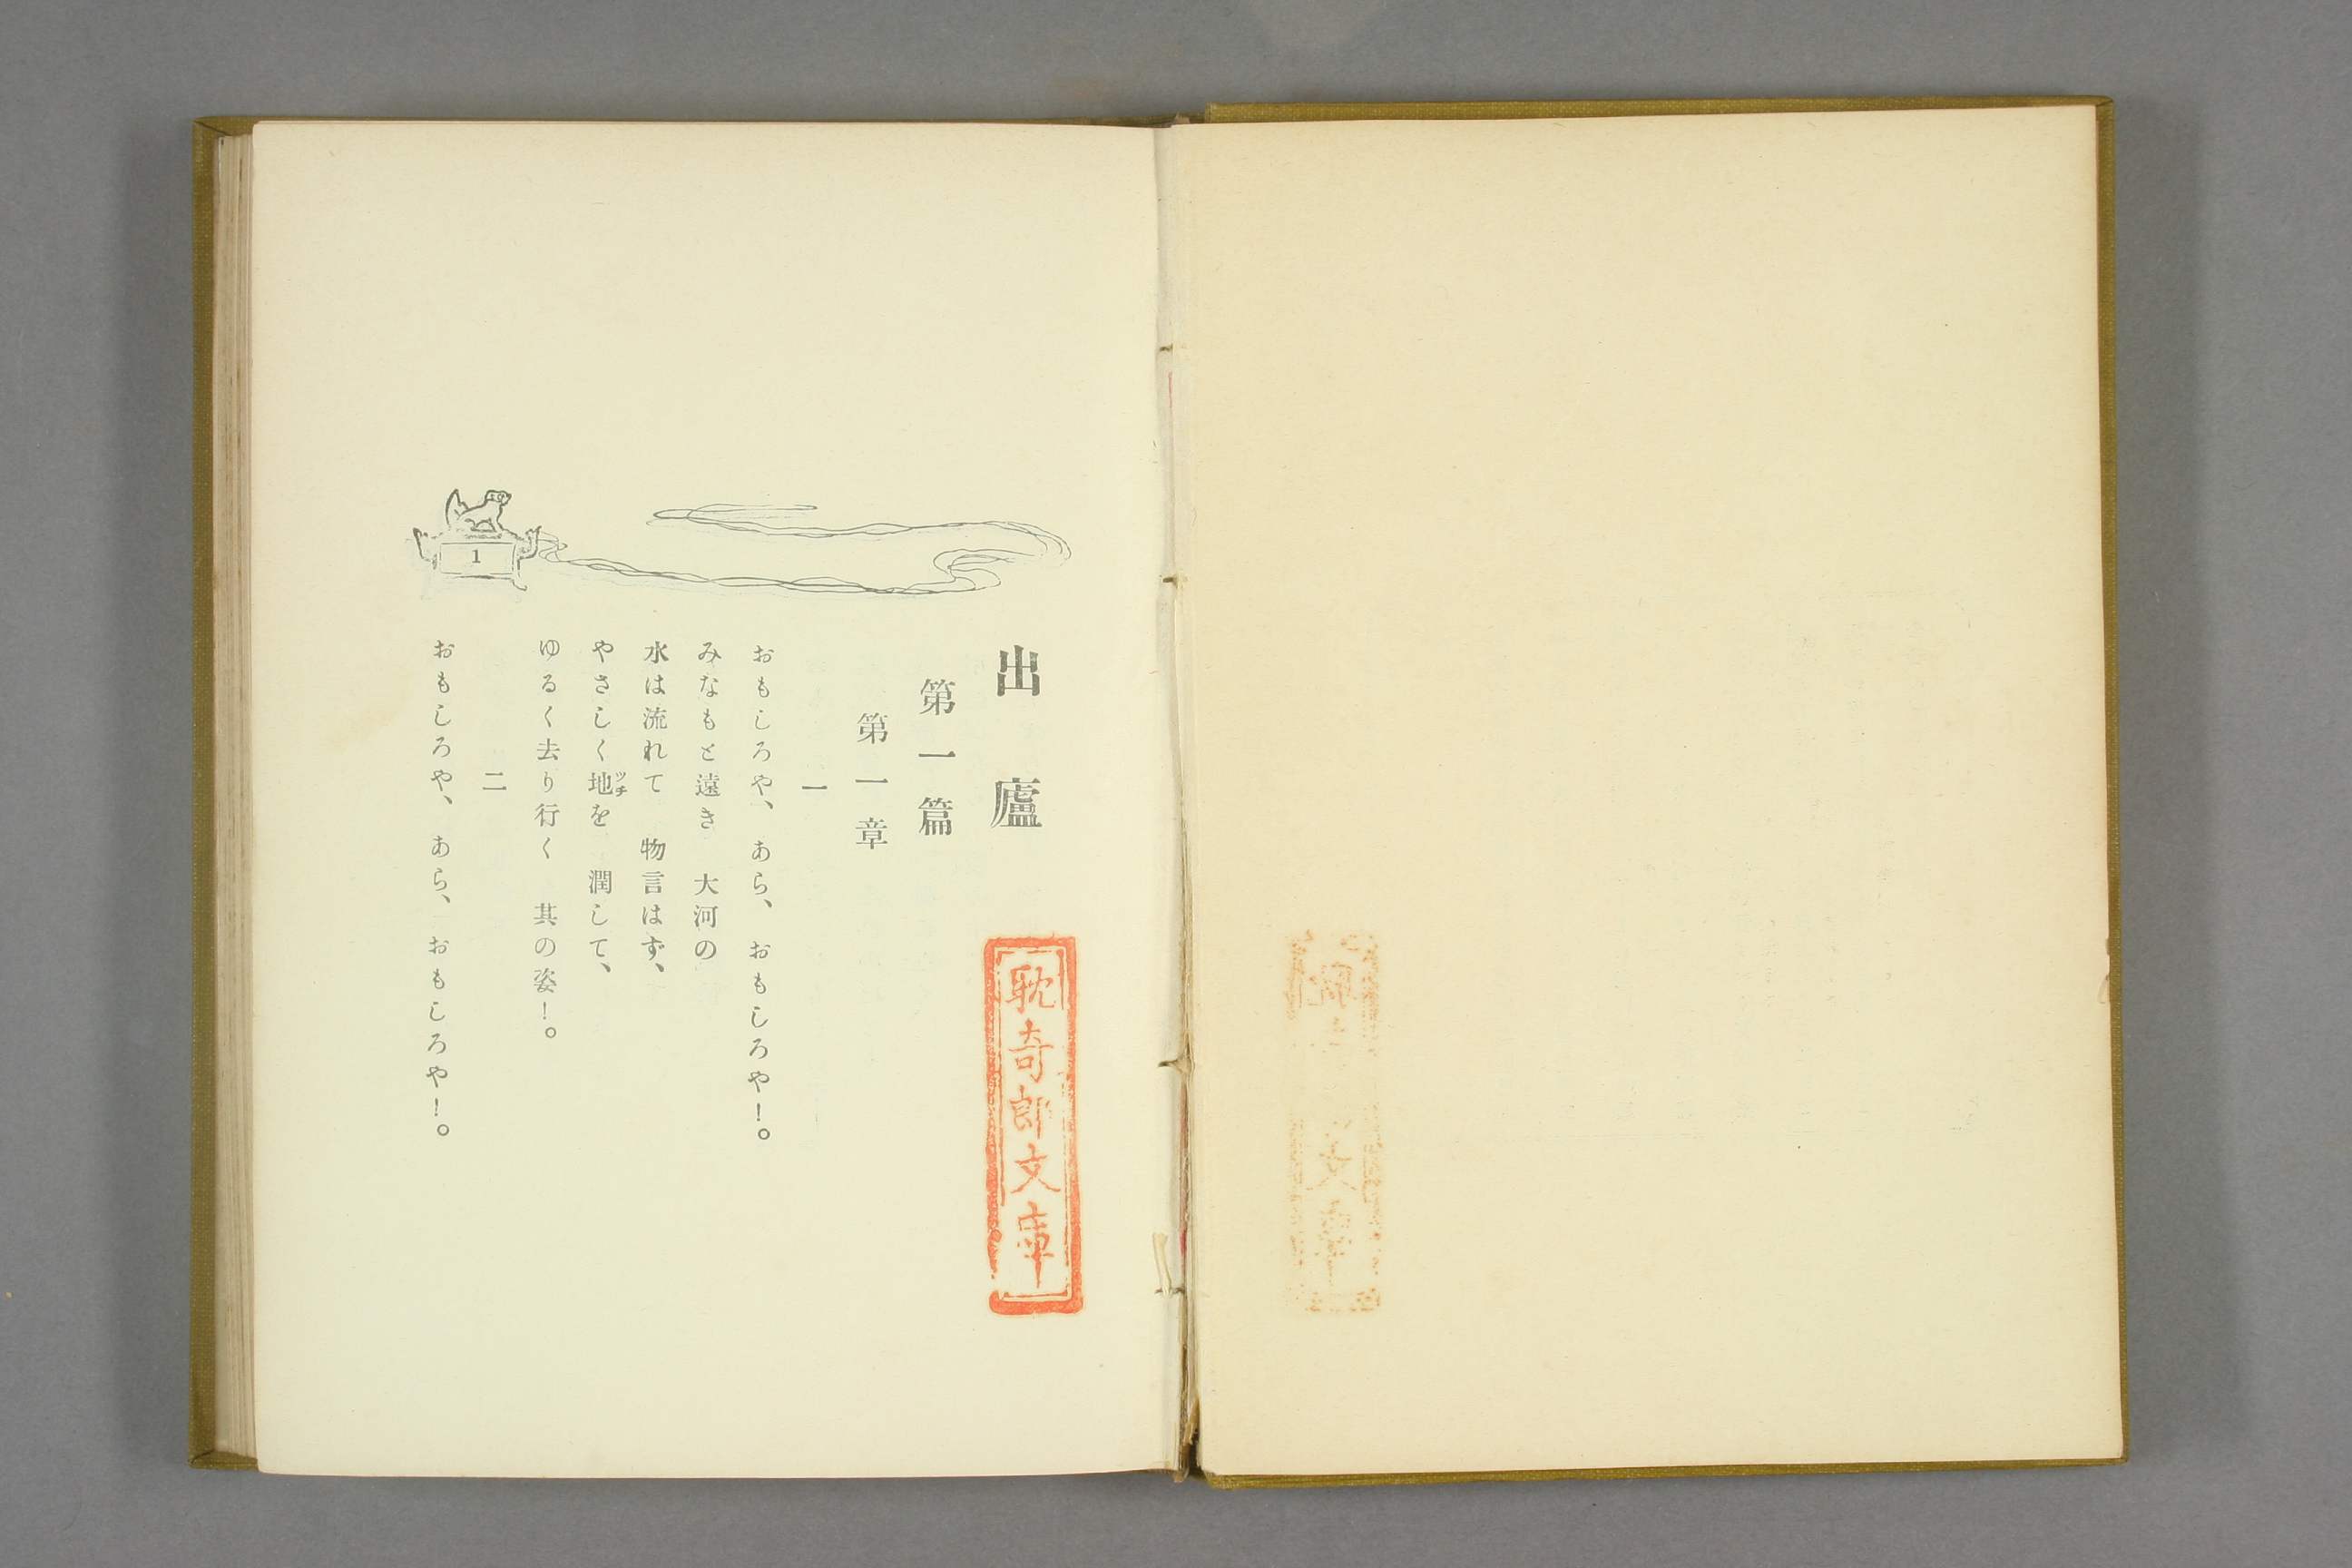 出廬
第一篇
第一章
一
おもしろや、あら、おもしろや！。
みなもと遠き　大河の
水は流れて　物言はず、
やさしく地を　潤して、
ツチ
ゆるく去り行く　其の姿！。
二
おもしろや、あら、おもしろや！。
1
耽奇郎文庫